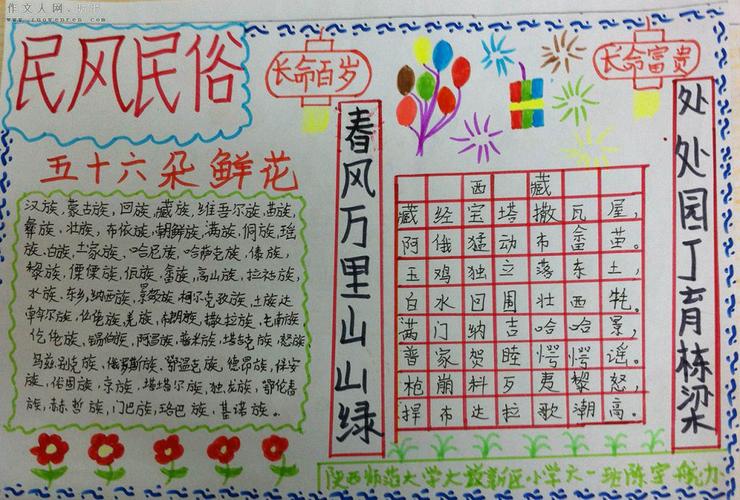 作文人网
www.zuowenren.com
民风民俗
长命百岁
长命富贵
五十六朵鲜花
汉族,蒙古族,回族,藏族,维吾尔族,苗族,
彝族,壮族,布依族,朝鲜族,满族,侗族,瑶
族,白族,土家族,哈尼族,哈萨克族,傣族,
黎族,傈僳族,佤族,畲族,高山族,拉祜族,
水族,东乡,纳西族,景颇族,柯尔克孜族,土族,达
斡尔族,仫佬族,羌族,布朗族,撒拉族,毛南族,
仡佬族,锡伯族,阿昌族,普米族,塔吉克族,怒族,
乌兹别克族,俄罗斯族,鄂温克族,德昂族,保安
族,裕固族,京族,塔塔尔族,独龙族,鄂伦春
族,赫哲族,门巴族,珞巴族,基诺族。
春风万里山山绿
西藏
藏经宝塔撒瓦屋,
阿俄猛动布畲苗。
玉鸡独立落东土,
白水回围壮西牦。
满门纳吉哈哈景,
普家贺睦愕愕谣。
枪崩科歹夷黎怒,
捍布达拉歌潮高。
处处园丁育栋梁
陕西师范大学大 新区小学六一班陈宇航力